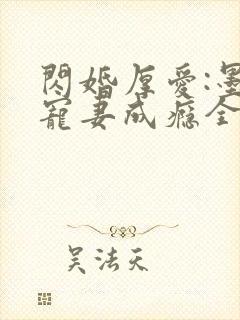 閃婚厚愛:墨
寵妻成癮全
吴法天